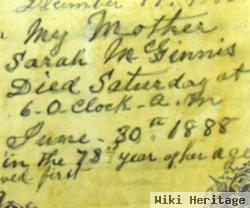 December 17
My Mother
Sarah McGinnis
Died Saturday at
6-O-Clock-A.M
June-30th 1888
in the 78th year of her age
ved first
Wiki Heritage